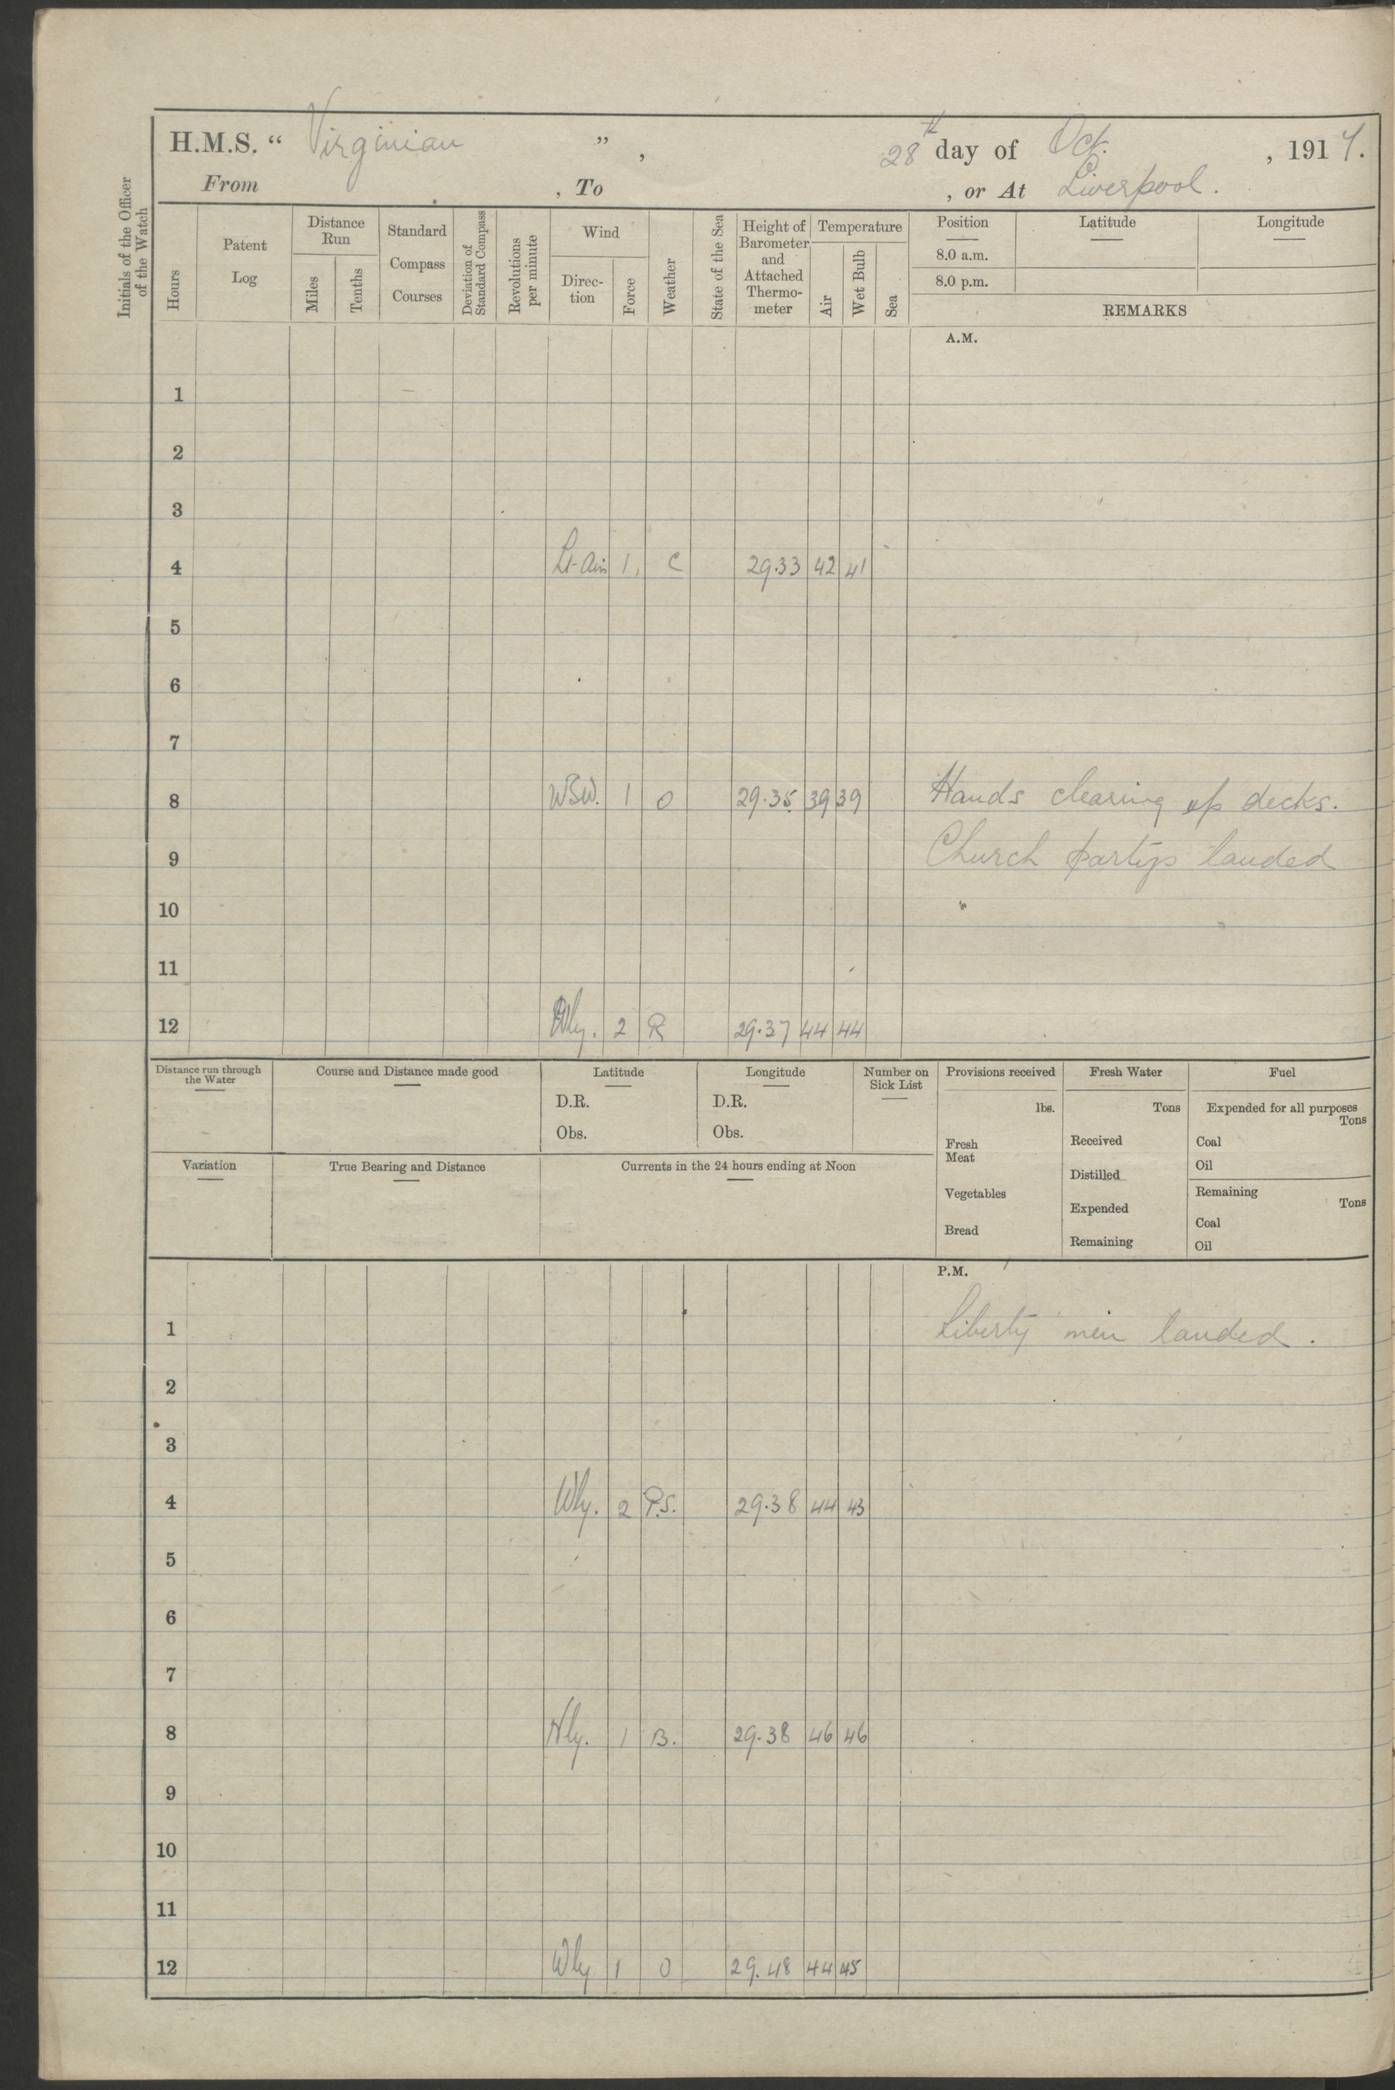 H.M.S. “ Virginian ”, 28th day of Oct. , 1917.
From , To , or At Liverpool.
Initials of the Officer of the Watch
Hours
Patent Log
Distance Run
Miles
Tenths
Standard Compass Courses
Deviation of Standard Compass
Revolutions per minute
Wind
Direc-tion
Force
Weather
State of the Sea
Height of Barometer and Attached Thermo-meter
Temperature
Air
Wet Bulb
Sea
Position Latitude Longitude
8.0 a.m.
8.0 p.m.
REMARKS
A.M.
1
2
3
4 Lt. Air 1, C 29.33 42 41
5
6
7
8 WSW. 1 O 29.35 39 39 Hands clearing up decks.
9 Church partys landed
10
11
12 Wly. 2 R 29.37 44 44
Distance run through the Water
Course and Distance made good
Latitude
D.R.
Obs.
Longitude
D.R.
Obs.
Number on Sick List
Variation
True Bearing and Distance
Currents in the 24 hours ending at Noon
Provisions received
lbs.
Fresh Meat
Vegetables
Bread
Fresh Water
Tons
Received
Distilled
Expended
Remaining
Fuel
Expended for all purposes
Tons
Coal
Oil
Remaining
Tons
Coal
Oil
P.M.
1 Liberty men landed.
2
3
4 Wly. 2 P.S. 29.38 44 43
5
6
7
8 Nly. 1 B. 29.38 46 46
9
10
11
12 Wly 1 O 29.48 44 45